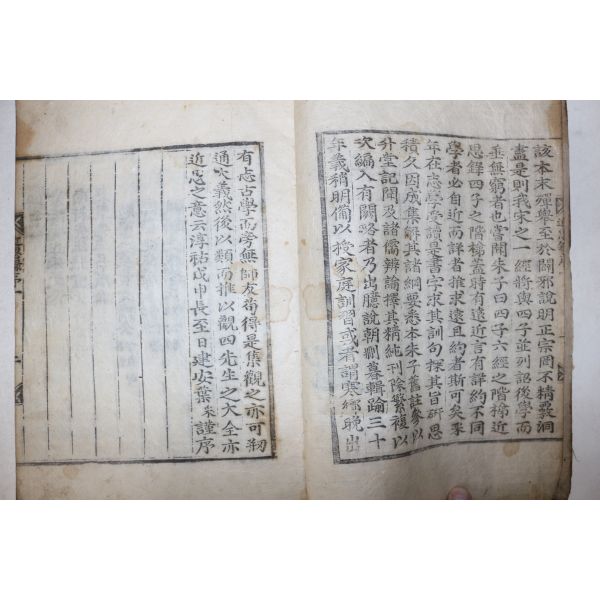 該本末殫舉至於闢邪說明正宗罔不精覈洞
盡是則我宋之一經將與四子並列詔後學而
垂無窮者也嘗聞朱子曰四子六經之階梯近
思錄四子之階梯盖時有遠近言有詳約不同
學者必自近而詳者推求遠且約者斯可矣采
年在志學受讀是書字求其訓句探其旨研思
積久因成集解其諸綱要悉本朱子舊註參以
升堂記聞及諸儒辨論擇其精純刊除繁複以
次編入有闕略者乃出臆說朝刪暮輯踰三十
年義稍明備以授家庭訓習或者謂寒鄉晚出
有志古學而旁無師友苟得是集觀之亦可刱
通大義然後以類而推以觀四先生之大全亦
近思之意云淳祐戊申長至日建安葉采謹序